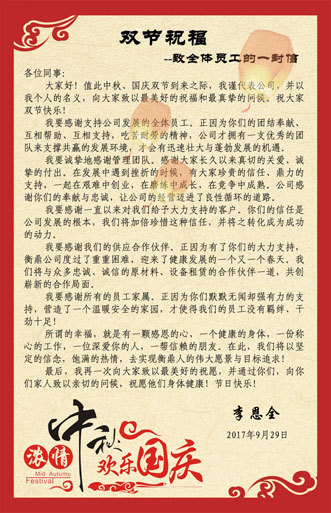 双节祝福
--致全体员工的一封信
各位同事：
大家好！值此中秋、国庆双节到来之际，我谨代表公司，并以
我个人的名义，向大家致以最美好的祝福和最真挚的问候。祝大家
双节快乐！
我要感谢支持公司发展的全体员工。正因为你们的团结奉献、
互相帮助、互相支持，吃苦耐劳的精神，公司才拥有一支优秀的团
队来支撑共赢的发展环境，才会有迅速壮大与蓬勃发展的机遇。
我要诚挚地感谢管理团队。感谢大家长久以来真切的关爱、诚
挚的付出。在发展中遇到挫折的时候，有大家珍贵的信任、鼎力的
支持，一起在艰难中创业，在磨练中成长，在竞争中成熟。公司感
谢你们的奉献与忠诚，让公司的经营迈进了良性循环的道路。
我要感谢一直以来对我们给予大力支持的客户。你们的信任是
公司发展的根本，我们将加倍珍惜这种信任，并将之转化成为成功
的动力。
我要感谢我们的供应合作伙伴。正因为有了你们的大力支持，
衡鼎公司度过了重重困难，迎来了健康发展的一个又一个春天。我
们将与众多忠诚、诚信的原材料、设备租赁的合作伙伴一道，共创
崭新的合作局面。
我要感谢所有的员工家属。正因为你们默默无闻却强有力的支
持，营造了一个温暖安全的家园，才使得我们的员工没有羁绊、干
劲十足！
所谓的幸福，就是有一颗感恩的心，一个健康的身体，一份称
心的工作，一位深爱你的人，一帮信赖的朋友。在此，我们将以坚
定的信念，饱满的热情，去实现衡鼎人的伟大愿景与目标追求！
最后，我再一次向大家致以最美好的祝愿，并通过你们，向你
们家人致以亲切的问候，祝愿他们身体健康！节日快乐！
李恩全
2017年9月29日
浓情
中秋
欢乐国庆
Mid Autumu
Festival